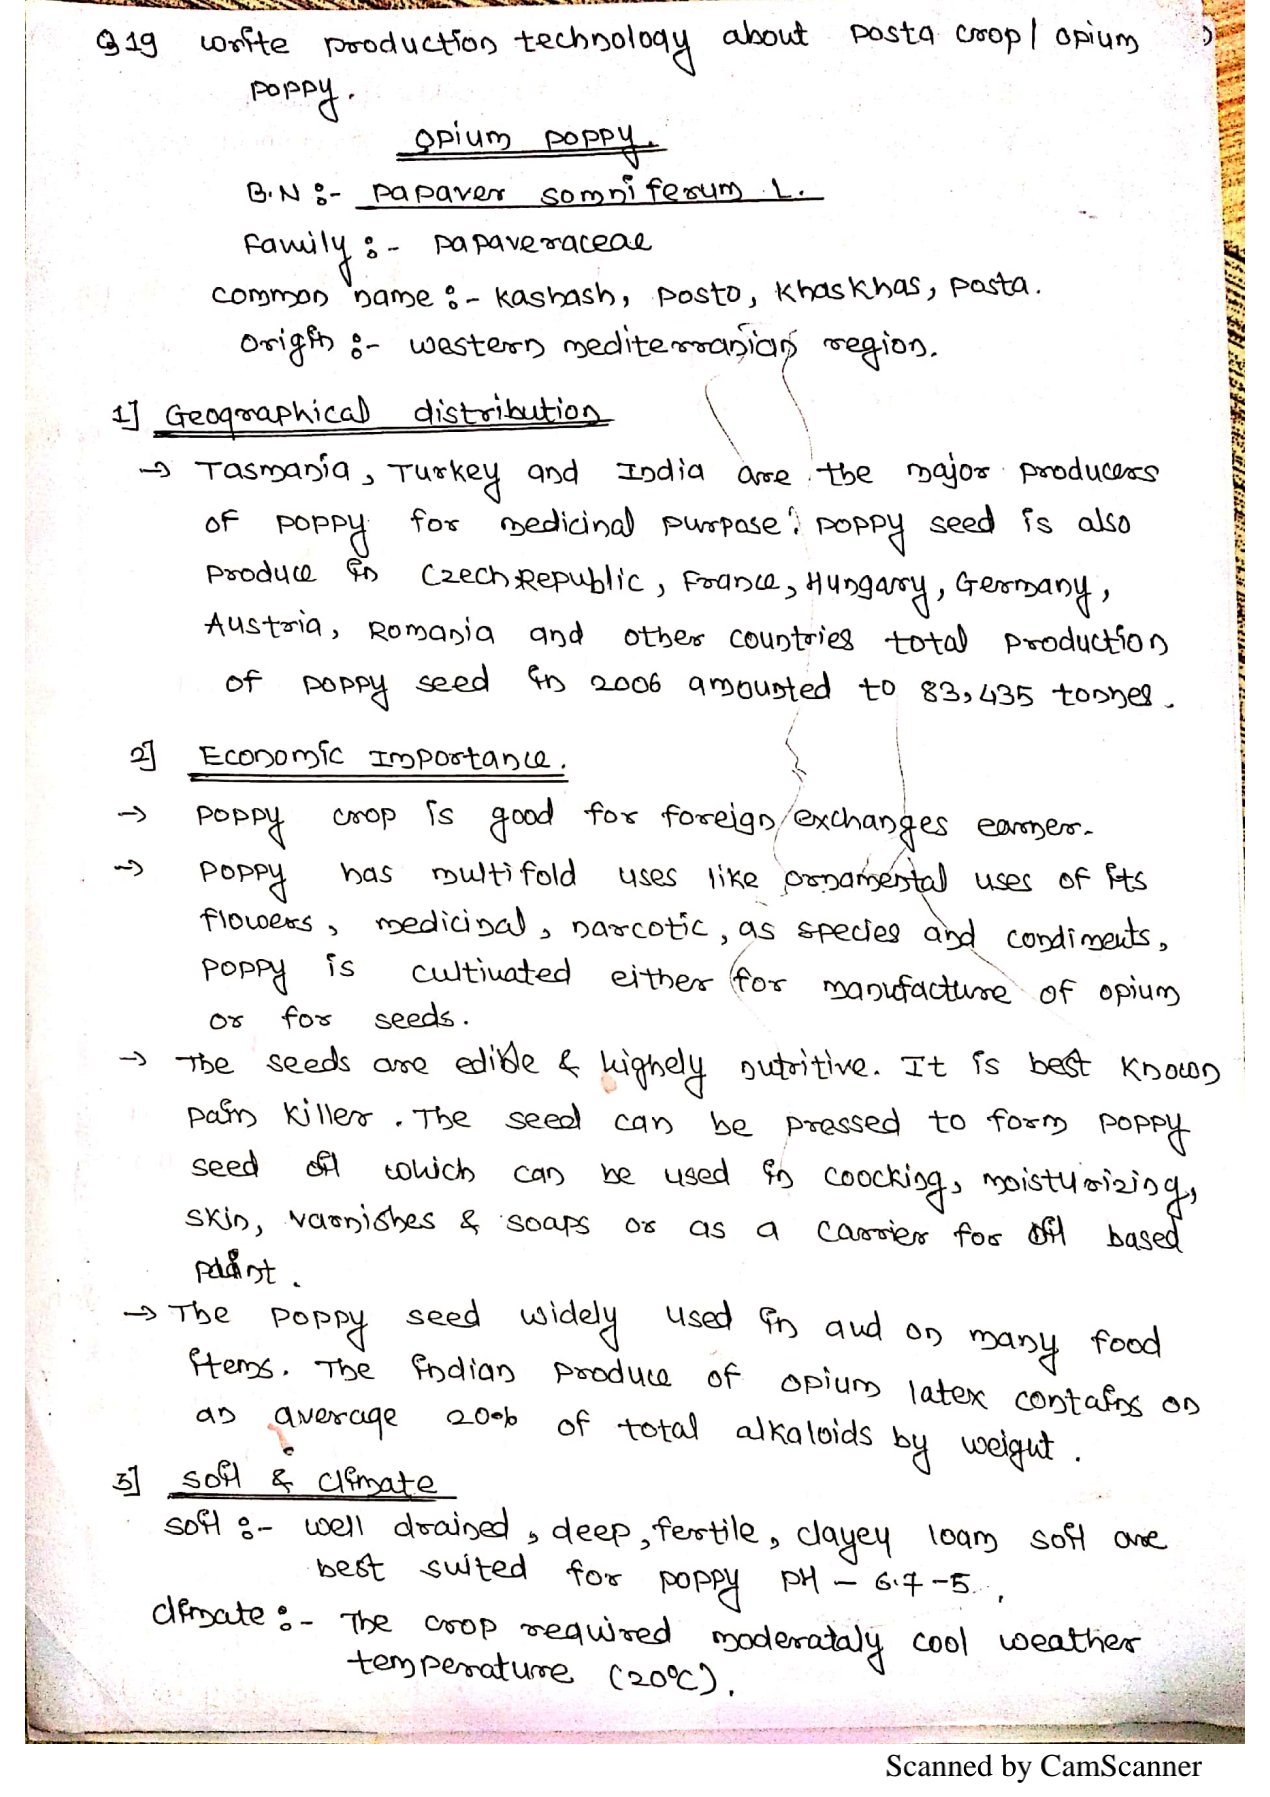 Q19 write production technology about posta crop/ opium
poppy.
opium poppy.
B.N :- papaver somniferum L.
Family :- papaveraceae
common name :- kashash, posto, khaskhas, posta.
origin :- western mediterranian region.
1] Geographical distribution
→ Tasmania, Turkey and India are the major producers
of poppy for medicinal purpose. poppy seed is also
produce in Czech Republic, France, Hungary, Germany,
Austria, Romania and other countries total production
of poppy seed in 2006 amounted to 83,435 tonnes.
2] Economic Importance.
→ poppy crop is good for foreign exchanges earner.
→ poppy has multifold uses like ornamental uses of its
flowers, medicinal, narcotic, as species and condiments,
poppy is cultivated either for manufacture of opium
or for seeds.
→ The seeds are edible & highely nutritive. It is best known
pain killer. The seed can be pressed to form poppy
seed oil which can be used in coocking, moisturizing,
skin, varnishes & soaps or as a carrier for oil based
paint.
→ The poppy seed widely used in and on many food
items. The indian produce of opium latex contains on
an average 20% of total alkaloids by weigut.
3] soil & climate
soil :- well drained, deep, fertile, clayey loam soil are
best suited for poppy pH - 6.7-5.
climate :- The crop required moderataly cool weather
temperature (20°C).
Scanned by CamScanner